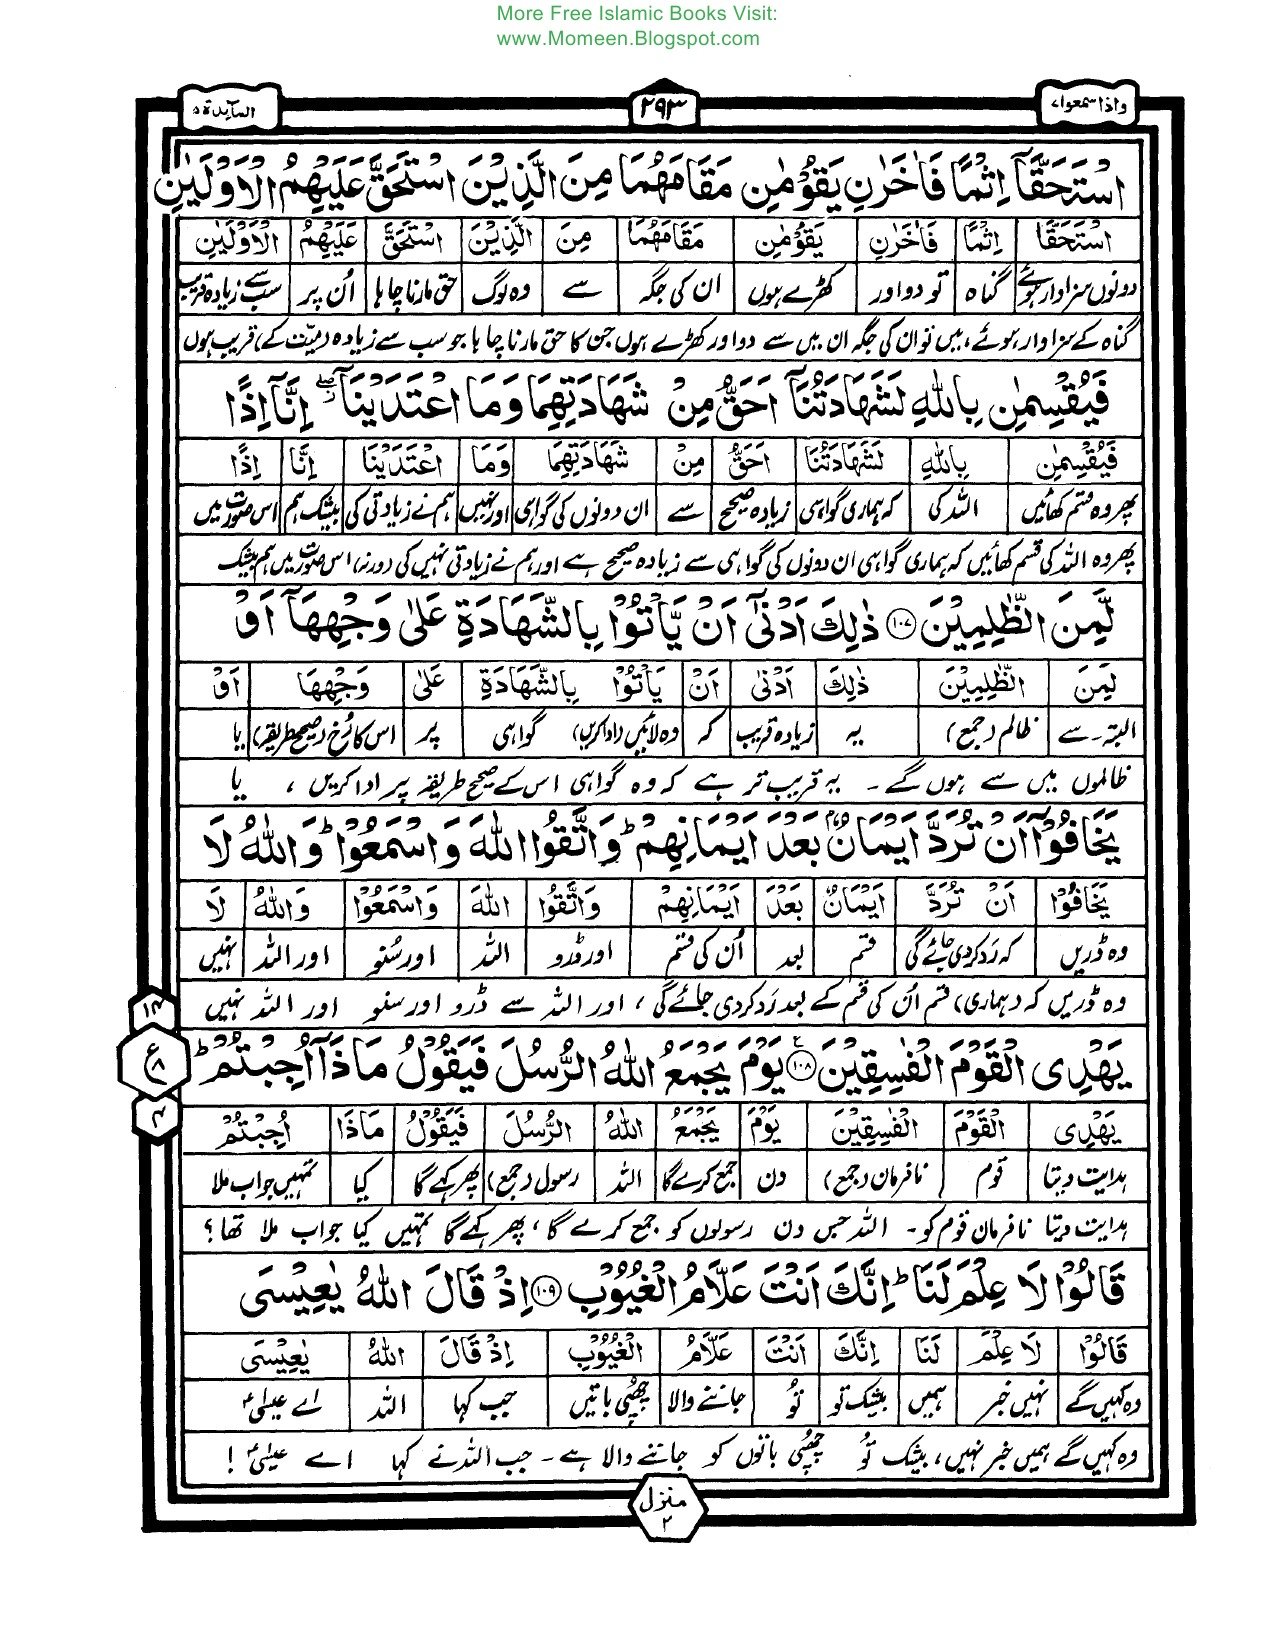 More Free Islamic Books Visit:
www.Momeen.Blogspot.com
واذاسمعوا۷ ۲۹۳ المآئدة ۵
اسْتَحَقَّاۤ اِثْمًا فَاٰخَرٰنِ یَقُوْمٰنِ مَقَامَهُمَا مِنَ الَّذِیْنَ اسْتَحَقَّ عَلَیْهِمُ الْاَوْلَیٰنِ
اسْتَحَقَّا اِثْمًا فَاٰخَرٰنِ یَقُوْمٰنِ مَقَامَهُمَا مِنَ الَّذِیْنَ اسْتَحَقَّ عَلَیْهِمُ الْاَوْلَیٰنِ
دونوں سزاوار ہوئے گناہ تو دو اور کھڑے ہوں ان کی جگہ سے وہ لوگ حق مارنا چاہا اُن پر سب سے زیادہ قریب
گناہ کے سزاوار ہوئے ہیں تو ان کی جگہ ان میں سے دو اور کھڑے ہوں جن کا حق مارنا چاہا جو سب سے زیادہ (میّت کے) قریب ہوں
فَیُقْسِمٰنِ بِاللّٰهِ لَشَهَادَتُنَاۤ اَحَقُّ مِنْ شَهَادَتِهِمَا وَمَا اعْتَدَیْنَاۤ ۖ اِنَّاۤ اِذًا
فَیُقْسِمٰنِ بِاللّٰهِ لَشَهَادَتُنَا اَحَقُّ مِنْ شَهَادَتِهِمَا وَمَا اعْتَدَیْنَا اِنَّا اِذًا
پھر وہ قسم کھائیں اللہ کی کہ ہماری گواہی زیادہ صحیح سے ان دونوں کی گواہی اور نہیں ہم نے زیادتی کی بیشک ہم اس صورت میں
پھر وہ اللہ کی قسم کھائیں کہ ہماری گواہی ان دونوں کی گواہی سے زیادہ صحیح ہے اور ہم نے زیادتی نہیں کی (ورنہ) اس صورت میں ہم بیشک
لَّمِنَ الظّٰلِمِیْنَ ۱۰۷ ذٰلِكَ اَدْنٰۤی اَنْ یَّاْتُوْا بِالشَّهَادَةِ عَلٰی وَجْهِهَاۤ اَوْ
لَمِنَ الظّٰلِمِیْنَ ذٰلِكَ اَدْنٰی اَنْ یَاْتُوْا بِالشَّهَادَةِ عَلٰی وَجْهِهَا اَوْ
البتہ۔ سے ظالم (جمع) یہ زیادہ قریب کہ وہ لائیں (ادا کریں) گواہی پر اس کا رُخ (صحیح طریقہ) یا
ظالموں میں سے ہوں گے۔ یہ قریب تر ہے کہ وہ گواہی اس کے صحیح طریقے پر ادا کریں ، یا
یَخَافُوْۤا اَنْ تُرَدَّ اَیْمَانٌۢ بَعْدَ اَیْمَانِهِمْ ؕ وَاتَّقُوا اللّٰهَ وَاسْمَعُوْا ؕ وَاللّٰهُ لَا
یَخَافُوْا اَنْ تُرَدَّ اَیْمَانٌ بَعْدَ اَیْمَانِهِمْ وَاتَّقُوا اللّٰهَ وَاسْمَعُوْا وَاللّٰهُ لَا
وہ ڈریں کہ رد کر دی جائے گی قسم بعد اُن کی قسم اور ڈرو اللہ اور سُنو اور اللہ نہیں
وہ ڈریں کہ (ہماری) قسم اُن کی قسم کے بعد رد کر دی جائے گی ، اور اللہ سے ڈرو اور سنو اور اللہ نہیں
۱۴
ع
۸
۴
یَهْدِی الْقَوْمَ الْفٰسِقِیْنَ ۱۰۸ ع یَوْمَ یَجْمَعُ اللّٰهُ الرُّسُلَ فَیَقُوْلُ مَاذَاۤ اُجِبْتُمْ ؕ
یَهْدِی الْقَوْمَ الْفٰسِقِیْنَ یَوْمَ یَجْمَعُ اللّٰهُ الرُّسُلَ فَیَقُوْلُ مَاذَا اُجِبْتُمْ
ہدایت دیتا قوم نافرمان (جمع) دن جمع کرے گا اللہ رسول (جمع) پھر کہے گا کیا تمہیں جواب ملا
ہدایت دیتا نافرمان قوم کو۔ اللہ جس دن رسولوں کو جمع کرے گا ، پھر کہے گا تمہیں کیا جواب ملا تھا ؟
قَالُوْا لَا عِلْمَ لَنَا ؕ اِنَّكَ اَنْتَ عَلَّامُ الْغُیُوْبِ ۱۰۹ اِذْ قَالَ اللّٰهُ یٰعِیْسَی
قَالُوْا لَا عِلْمَ لَنَا اِنَّكَ اَنْتَ عَلَّامُ الْغُیُوْبِ اِذْ قَالَ اللّٰهُ یٰعِیْسَی
وہ کہیں گے نہیں خبر ہمیں بیشک تو تُو جاننے والا چھپی باتیں جب کہا اللہ اے عیسٰیؑ
وہ کہیں گے ہمیں خبر نہیں ، بیشک تُو چھپی باتوں کو جاننے والا ہے۔ جب اللہ نے کہا اے عیسٰیؑ !
منزل ۲